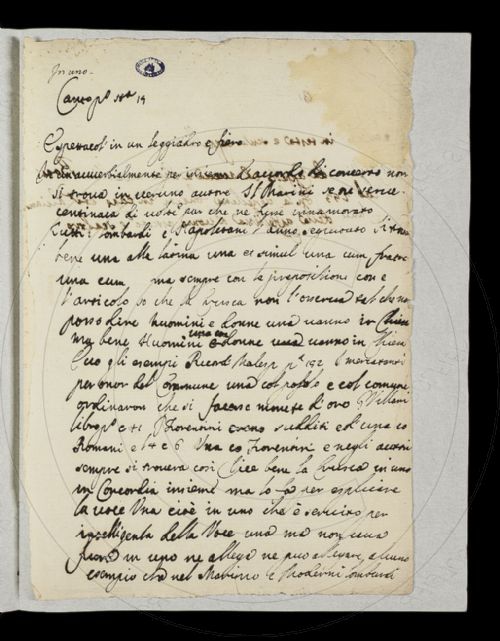 In uno.
Canto p.º st. 19
in un leggiadro e fiero
avverbialmente per insieme d'accordo di concerto non
si trova in veruno autore Il Marini se ne serve
centinaia di volte par che ne fusse innamorato
Tutti i Lombardi e Napolitani l'anno seguitato si trova
bene una alla latina una et simul una cum fratre
una cum ma sempre con la prepositione con e
l'articolo so che la Crusca non l'osserva
posso dire huomini e donne una vanno in
ma bene Huomini una con donne vanno in
gli esempi Ricord. Malesp. 152 I mercatanti
per onor del Commune una col popolo e col comune
ordinaron che si facesse monete d'oro G Villani
libro p.º c 41 I Fiorentini erano sudditi ed una co
Romani e Una co Fiorentini e negli autori
sempre si trovera così Dice bene la Crusca in uno
in Concordia insieme ma lo fa per esplicare
la voce Una cioè in uno che è servito per
intelligenza della Voce una ma non una
in uno ne allega ne può allegare alcuno
esempio che nel Marino e Moderni Lombardi